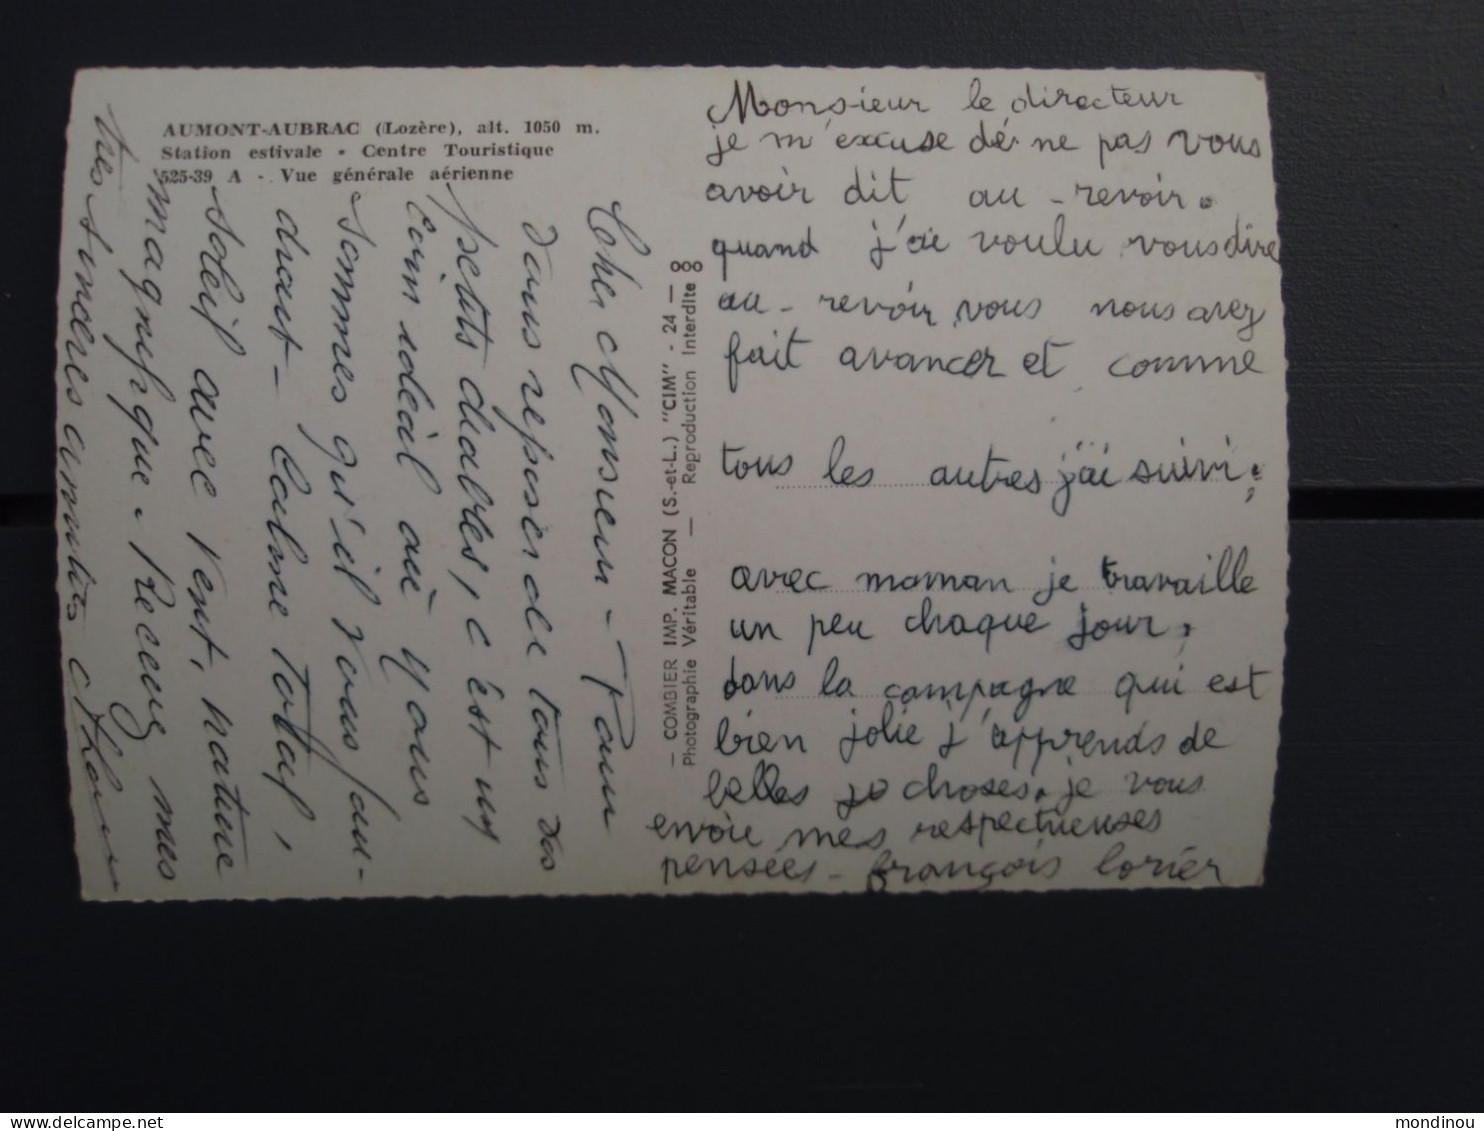 AUMONT-AUBRAC (Lozère), alt. 1050 m.
Station estivale - Centre Touristique
525-39 A - Vue générale aérienne
Cher Monsieur - Pour
vous reposer de tous vos
petits diables, c'est un
coin idéal où nous
sommes qu'il vous fau-
drait - Calme total,
soleil avec vent, nature
magnifique. Recevez mes
très sincères amitiés
— COMBIER IMP. MACON (S.-et-L.) "CIM" - 24 — 000
Photographie Véritable — Reproduction Interdite
Monsieur le directeur
je m'excuse dé ne pas vous
avoir dit au-revoir.
quand j'ai voulu vous dire
au-revoir vous nous avez
fait avancer et comme
tous les autres j'ai suivi;
avec maman je travaille
un peu chaque jour,
dans la campagne qui est
bien jolie j'apprends de
belles jo choses. je vous
envoie mes respectueuses
pensées - françois lorier
mondinou